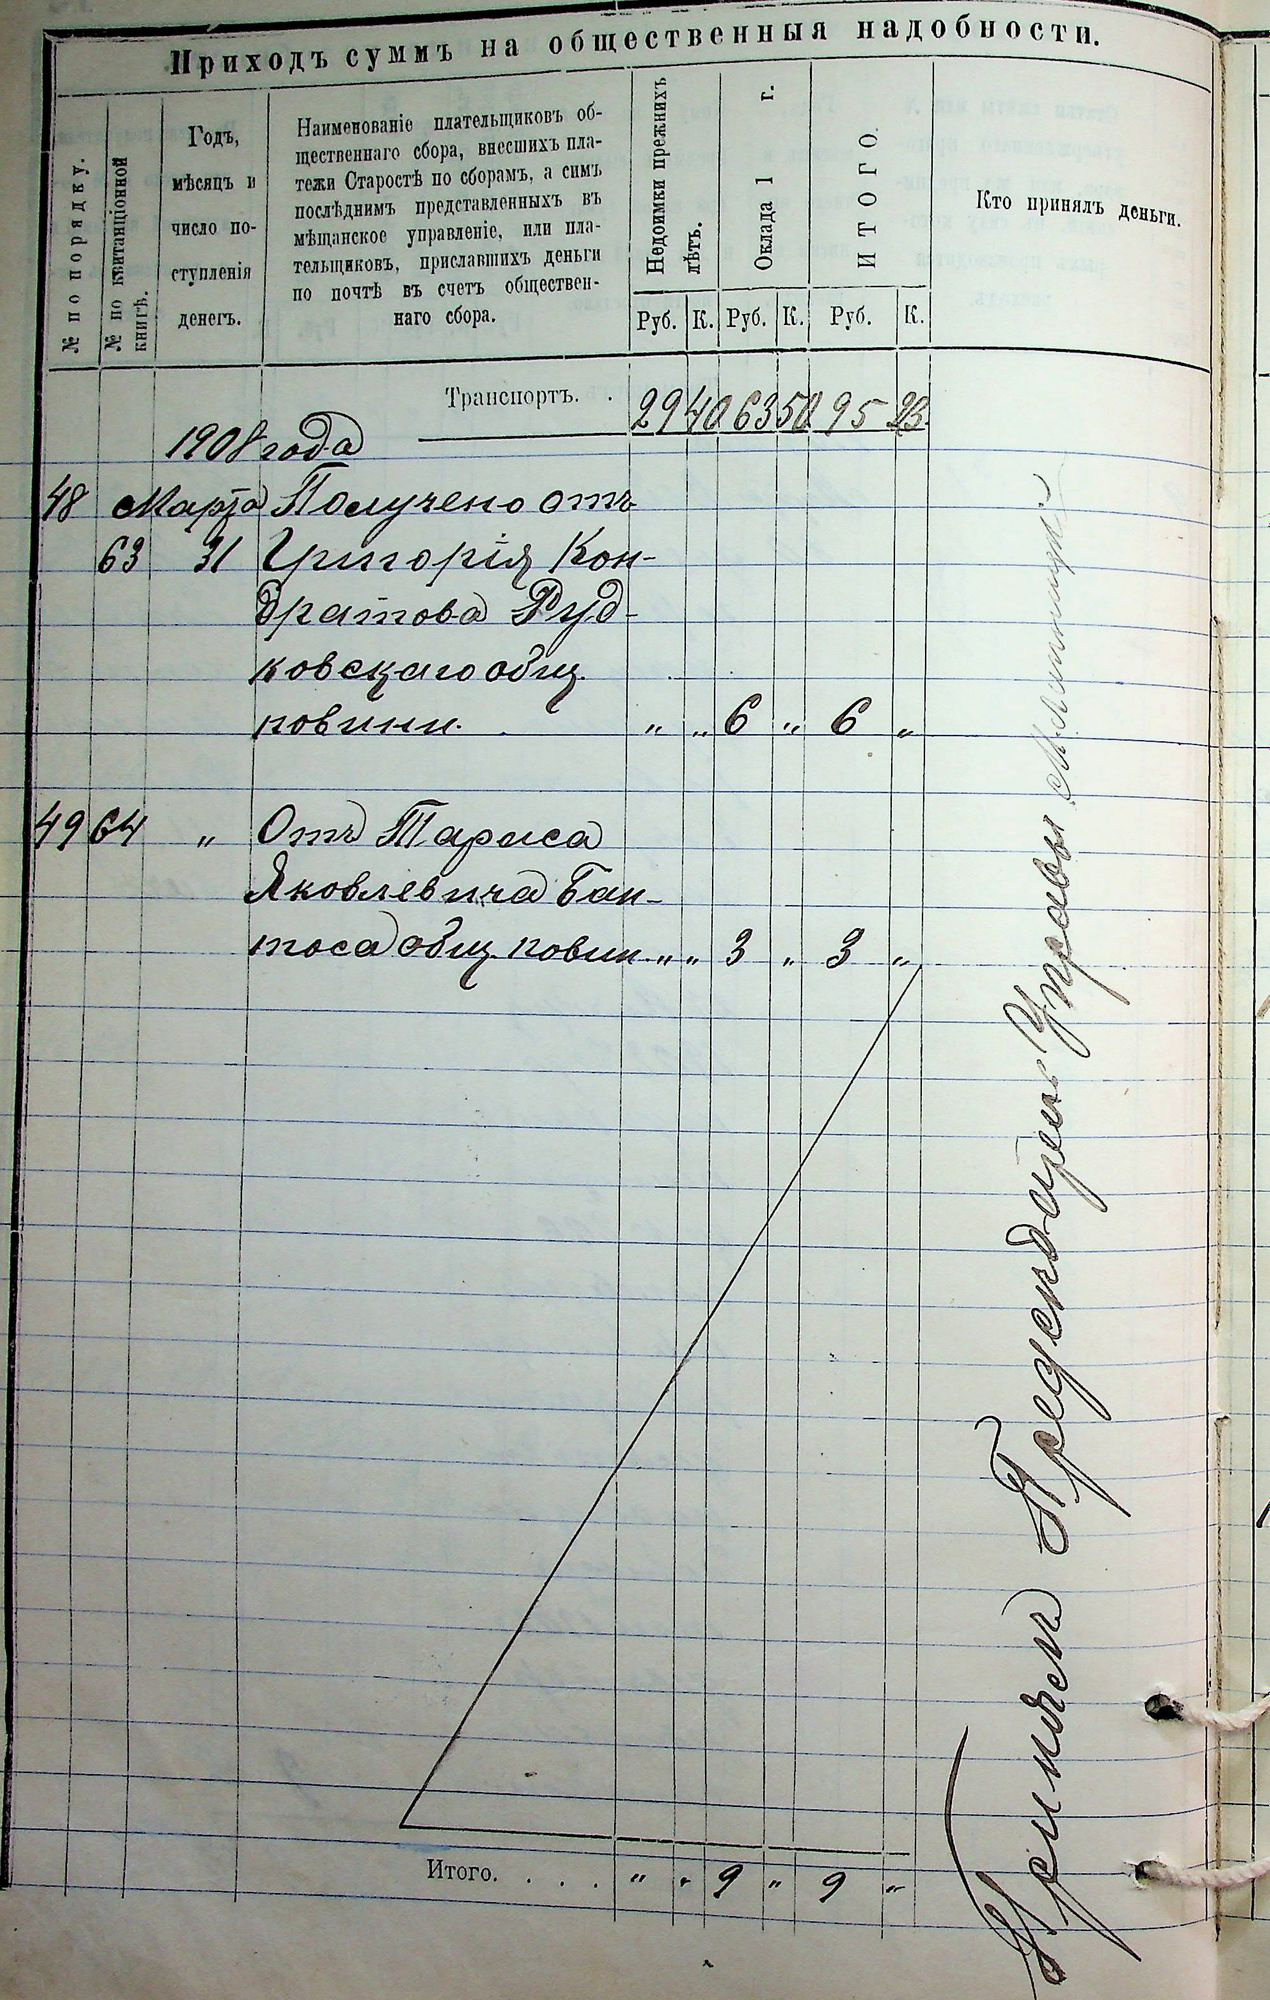 Приходъ суммъ на общественныя надобности.
№ по порядку.
№ по квитанціонной
книгѣ.
Годъ,
мѣсяцъ и
число по-
ступленія
денегъ.
Наименованіе плательщиковъ об-
щественнаго сбора, внесшихъ пла-
тежи Старостѣ по сборамъ, а симъ
послѣднимъ представленныхъ въ
мѣщанское управленіе, или пла-
тельщиковъ, приславшихъ деньги
по почтѣ въ счетъ обществен-
наго сбора.
Недоимки прежнихъ
лѣтъ.
Оклада 1 г.
ИТОГО.
Кто принялъ деньги.
Руб. К. Руб. К. Руб. К.
Транспортъ. . 29 40 63 50 95 23
1908 года
48 Марта Получено отъ
63 31 Григорія Кон-
дратова Руд-
ковскаго общ.
повини. „ „ 6 „ 6 „
49 64 „ Отъ Тариса
Яковлевича Бан-
тоса общ. повин. „ „ 3 „ 3 „
Итого. . . . „ „ 9 „ 9 „
Принялъ Предсѣдатель Управы